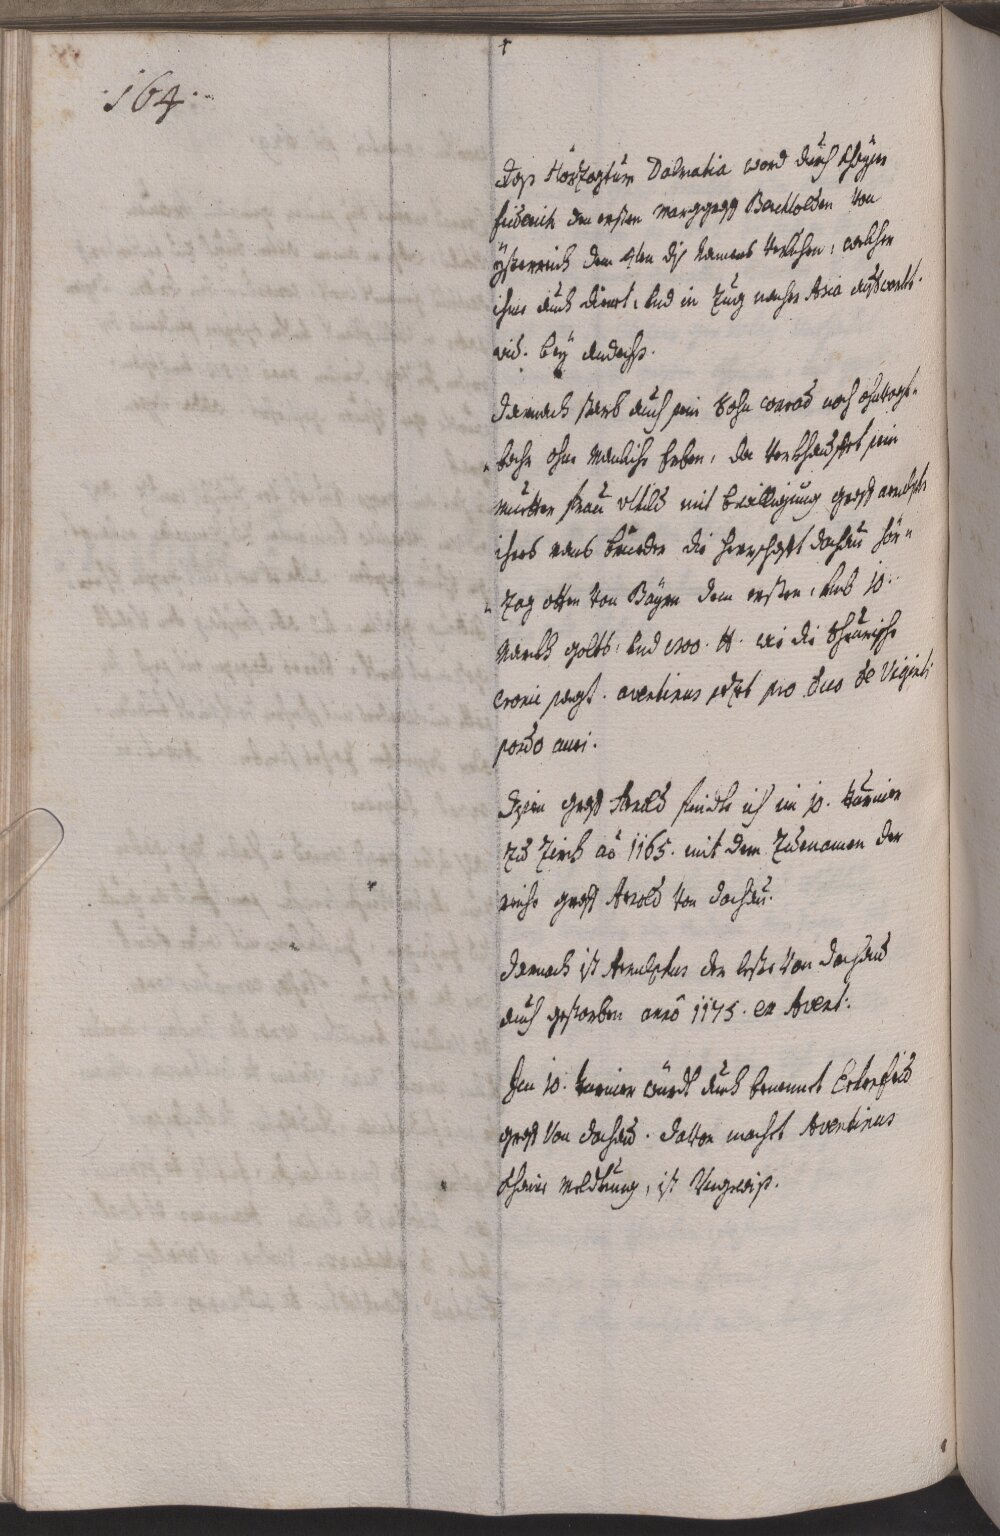 ·164·
Das Hörzogtum Dalmatia ward durch Khayser
friderich den ersten marggraff Berchtolden von
ÿsterreich dem 4ten diß Namens verlihen, welcher
ihme auch dient, und in Zug naher Asia
vid. beÿ Andechs.
Darnach starb auch sein Sohn conrad
ohne Manliche Erben, da verkhauffet sein
muetter frau vltild mit bewilligung graff arnolphs
ihres mans brueder die herrschafft dachau hör-
zog otten von Bayrn dem ersten, umb 10.
March golts, und 800. ℔. wie die Scheurische
Cronic sagt. aventinus setzt pro duo de Viginti
pondo auri.
Disen graff Arnold finde ich im 10. turnier
zu Zirch aō 1165. mit dem Zuenamen der
reiche graff Arnold von dachau.
Darnach ist Arnulphus der leste von dachau
auch gestorben anno 1175. ex Avent:
Im 10. turnier würdt auch benennt
graff von dachau. darvon macht Aventinus
khaine meldtung, ist Ungewiß.